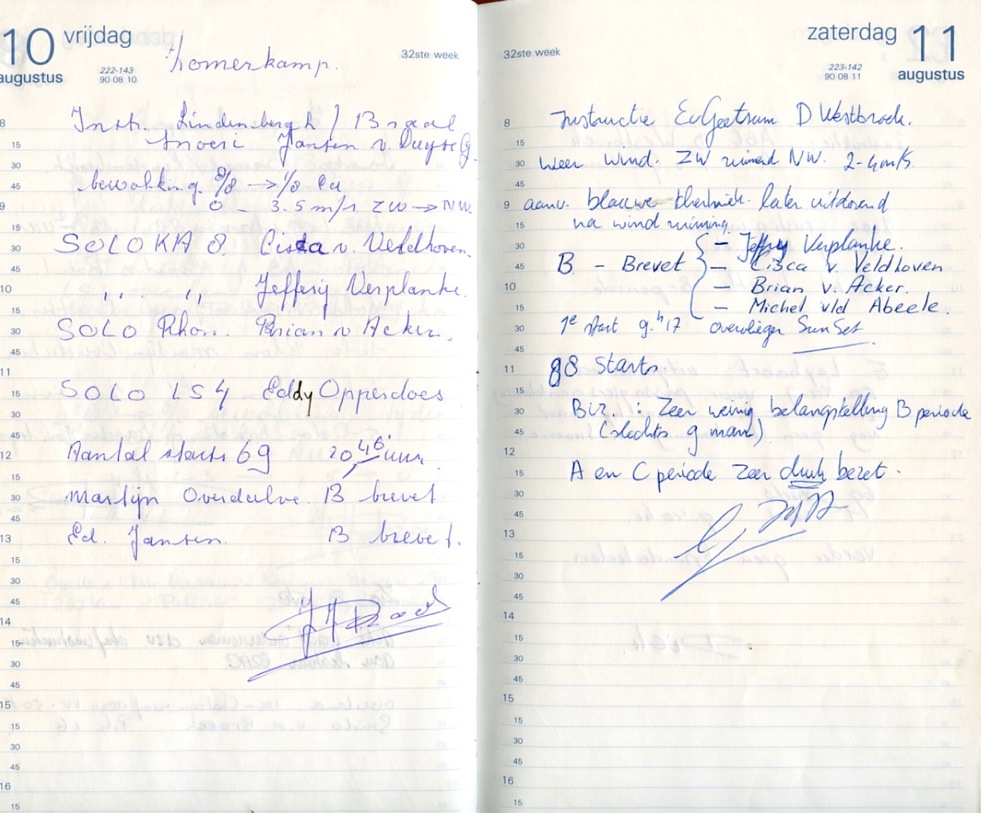 10 vrijdag
augustus
222-143
90 08 10
32ste week
Zomerkamp.
8 Instr. Lindenbergh / Braal
15 Jansen v. Duyse
30
45 bewolking 8/8 → 1/8 Cu
9 0 - 3.5 m/s ZW → NW
15
30 SOLO KA 8. Ciska v. Veldhoven.
45
10 ,, ,, Jefferij Verplanke.
15
30 SOLO Rhon. Brian v Acker.
45
11
15 SOLO LS4 Eddy Opperdoes
30
45
12 Aantal starts 69 20 46 uur.
15
30 Martijn Overdulve. B brevet
45
13 Ed. Jansen. B brevet.
15
30
45
14
15
30
45
15
15
30
45
16
15
zaterdag 11
augustus
223-142
90 08 11
32ste week
8 Instructie Ev Geetsum D Westbroek.
15
30 weer wind. ZW ruimend NW. 2-4 m/s
45
9 aanv. blauwe thermiek. later uitdovend
15 na wind ruiming.
30 – Jeffry Verplanke.
45 B. – Brevet – Cisca v. Veldhoven
10 – Brian v. Acker.
15 – Michel v/d Abeele.
30 1e start 9.h17 overvlieger SunSet
45
11 98 Starts
15
30 Biz. : Zeer weinig belangstelling B periode
45 (slechts 9 man)
12
15 A en C periode zeer druk bezet.
30
45
13
15
30
45
14
15
30
45
15
15
30
45
16
15